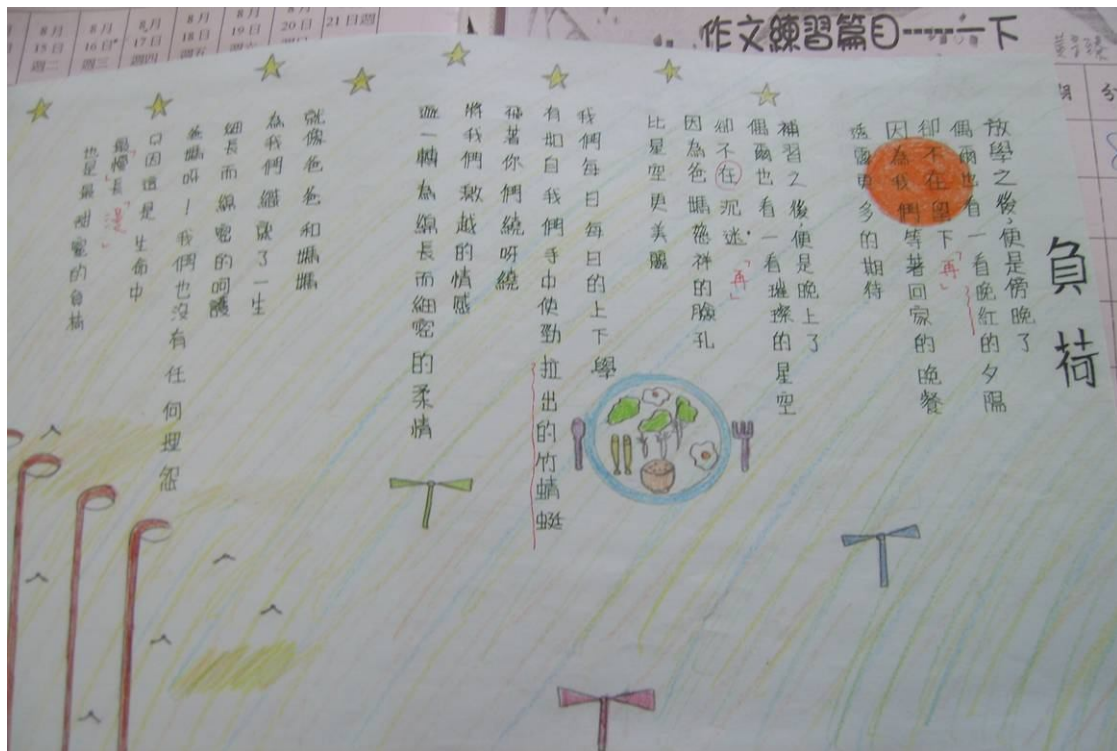 作文練習篇目┅┅一下
8月 15日 週二
8月 16日 週三
8月 17日 週四
8月 18日 週五
8月 19日
8月 20日
21日週
負荷
放學之後,便是傍晚了
偶爾也看一看晚紅的夕陽
卻不在留下「再」
因為我們等著回家的晚餐
透露更多的期待
補習之後,便是晚上了
偶爾也看一看璀璨的星空
卻不在沉迷「再」
因為爸媽慈祥的臉孔
比星空更美麗
我們每日每日的上下學
有如自我們手中使勁拉出的竹蜻蜓
飛著你們繞呀繞
將我們激越的情感
一轉為綿長而細密的柔情
就像爸爸和媽媽
為我們了一生
細長而綿密的呵護
爸媽呀!我們也沒有任何埋怨
只因這是生命中
最慢長「漫」
也是最甜蜜的負荷